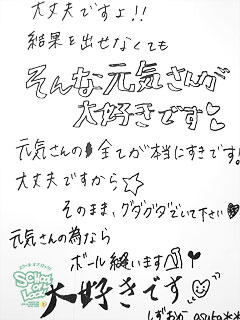 大丈夫ですよ!!
結果を出せなくても
そんな元気さんが
大好きです♡
元気さんの全てが本当にすきです!
大丈夫ですから☆
そのまま、グダグダでいて下さい♡
元気さんの為なら
ボール縫います
大好きです
しずおか asuka**
SCHOOL OF LOCK!